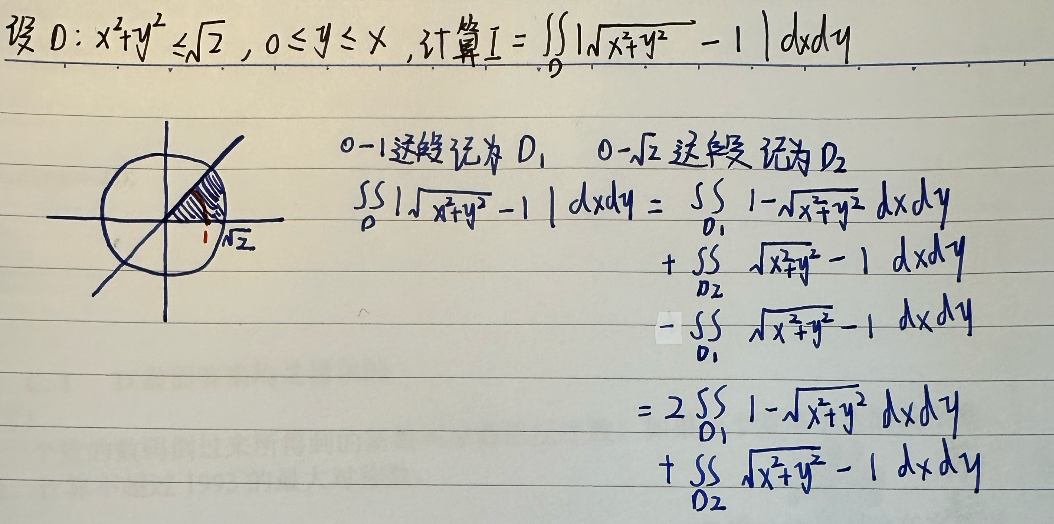 设 D: x²+y² ≤√2, 0≤y≤x, 计算I = ∬_D |√(x²+y²) - 1| dxdy
0-1这段记为 D₁ 0-√2 这段记为D₂
∬_D |√(x²+y²) - 1| dxdy = ∬_D₁ 1-√(x²+y²) dxdy
+ ∬_D₂ √(x²+y²) - 1 dxdy
- ∬_D₁ √(x²+y²) - 1 dxdy
= 2∬_D₁ 1-√(x²+y²) dxdy
+ ∬_D₂ √(x²+y²) - 1 dxdy
1 √2